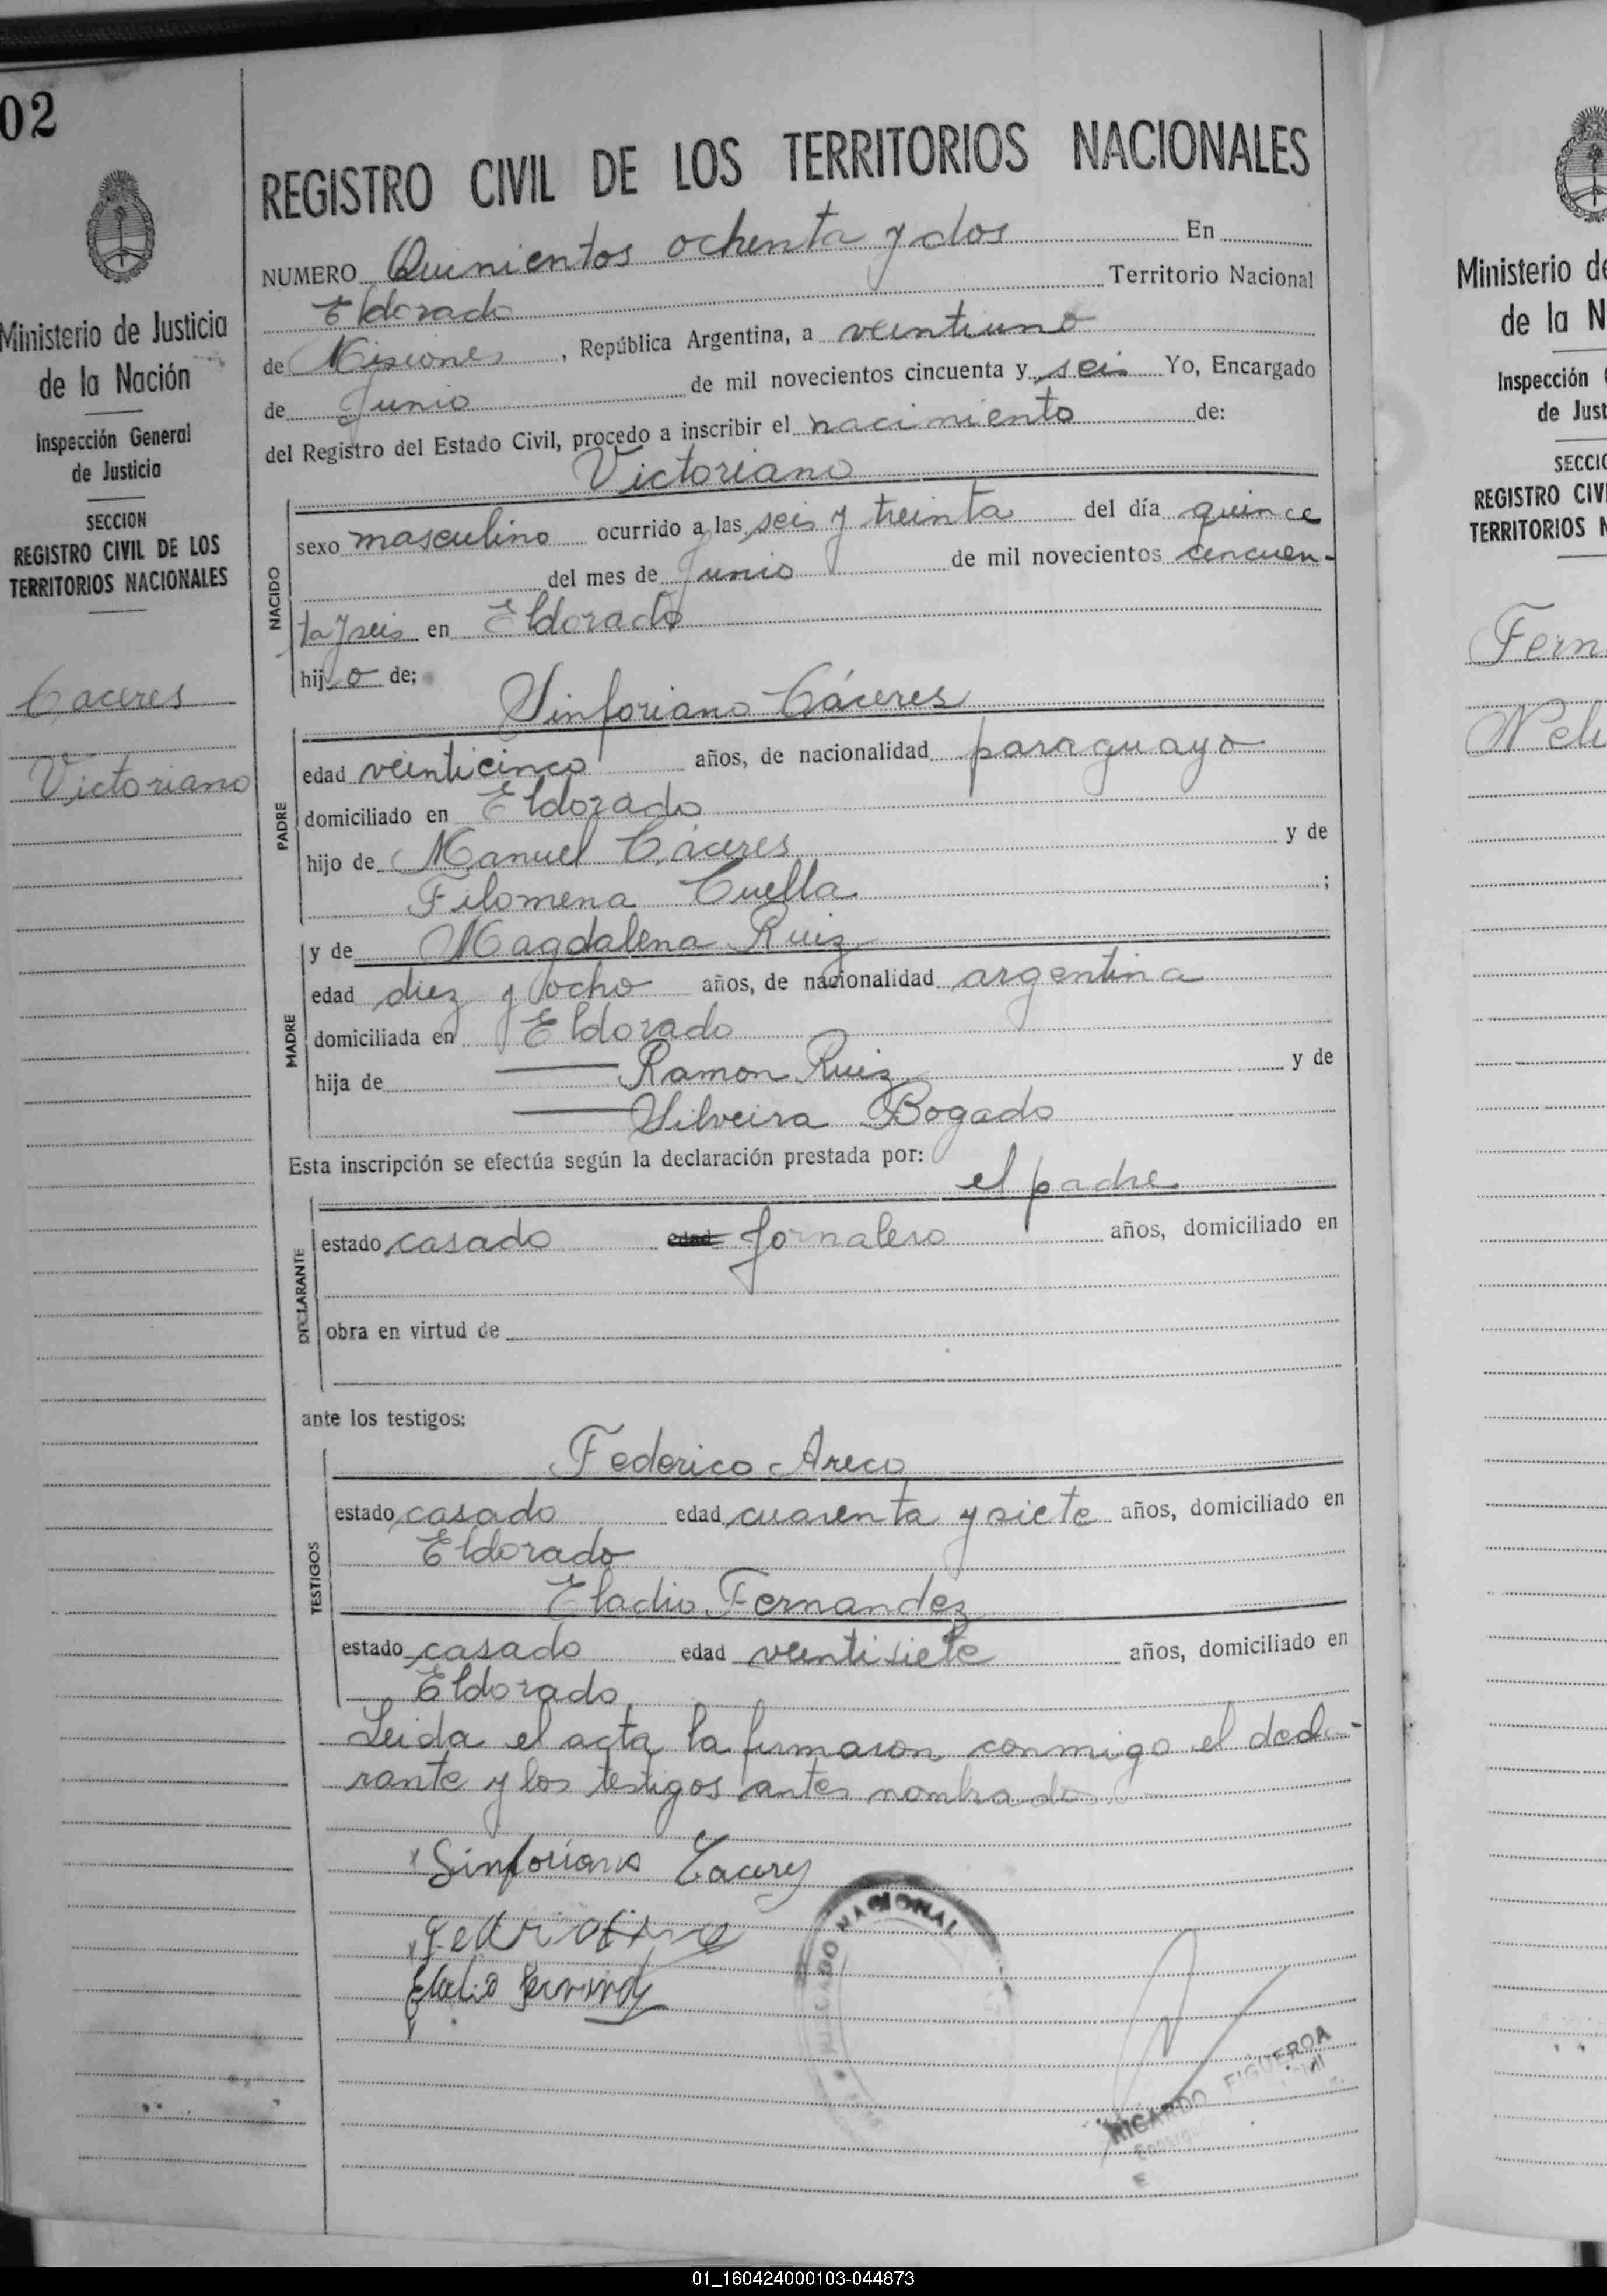 02
Ministerio de Justicia
de la Nación
Inspección General
de Justicia
SECCION
REGISTRO CIVIL DE LOS
TERRITORIOS NACIONALES
Caceres
Victoriano
REGISTRO CIVIL DE LOS TERRITORIOS NACIONALES
NUMERO Quinientos ochenta y dos En
Eldorado Territorio Nacional
de Misiones, República Argentina, a veintiuno
de Junio de mil novecientos cincuenta y seis Yo, Encargado
del Registro del Estado Civil, procedo a inscribir el nacimiento de:
Victoriano
NACIDO
sexo masculino ocurrido a las seis y treinta del día quince
del mes de Junio de mil novecientos cincuen-
ta y seis en Eldorado
hijo de;
Sinforiano Cáceres
PADRE
edad veinticinco años, de nacionalidad paraguayo
domiciliado en Eldorado
hijo de Manuel Cáceres y de
Filomena Cuella ;
MADRE
y de Magdalena Ruiz
edad diez y ocho años, de nacionalidad argentina
domiciliada en Eldorado
hija de — Ramon Ruiz y de
— Silveira Bogado
Esta inscripción se efectúa según la declaración prestada por:
el padre
DECLARANTE
estado casado edad jornalero años, domiciliado en
obra en virtud de
ante los testigos:
TESTIGOS
Federico Areco
estado casado edad cuarenta y siete años, domiciliado en
Eldorado
Eladio Fernandez
estado casado edad veintisiete años, domiciliado en
Eldorado
Leida el acta la firmaron conmigo el decla-
rante y los testigos antes nombrados.
Sinforiano Caceres
NACIONAL
RICARDO FIGUEROA
Ministerio de
de la N
Inspección
de Just
SECCIO
REGISTRO CIVI
TERRITORIOS N
Fern
Nel
01_160424000103-044873